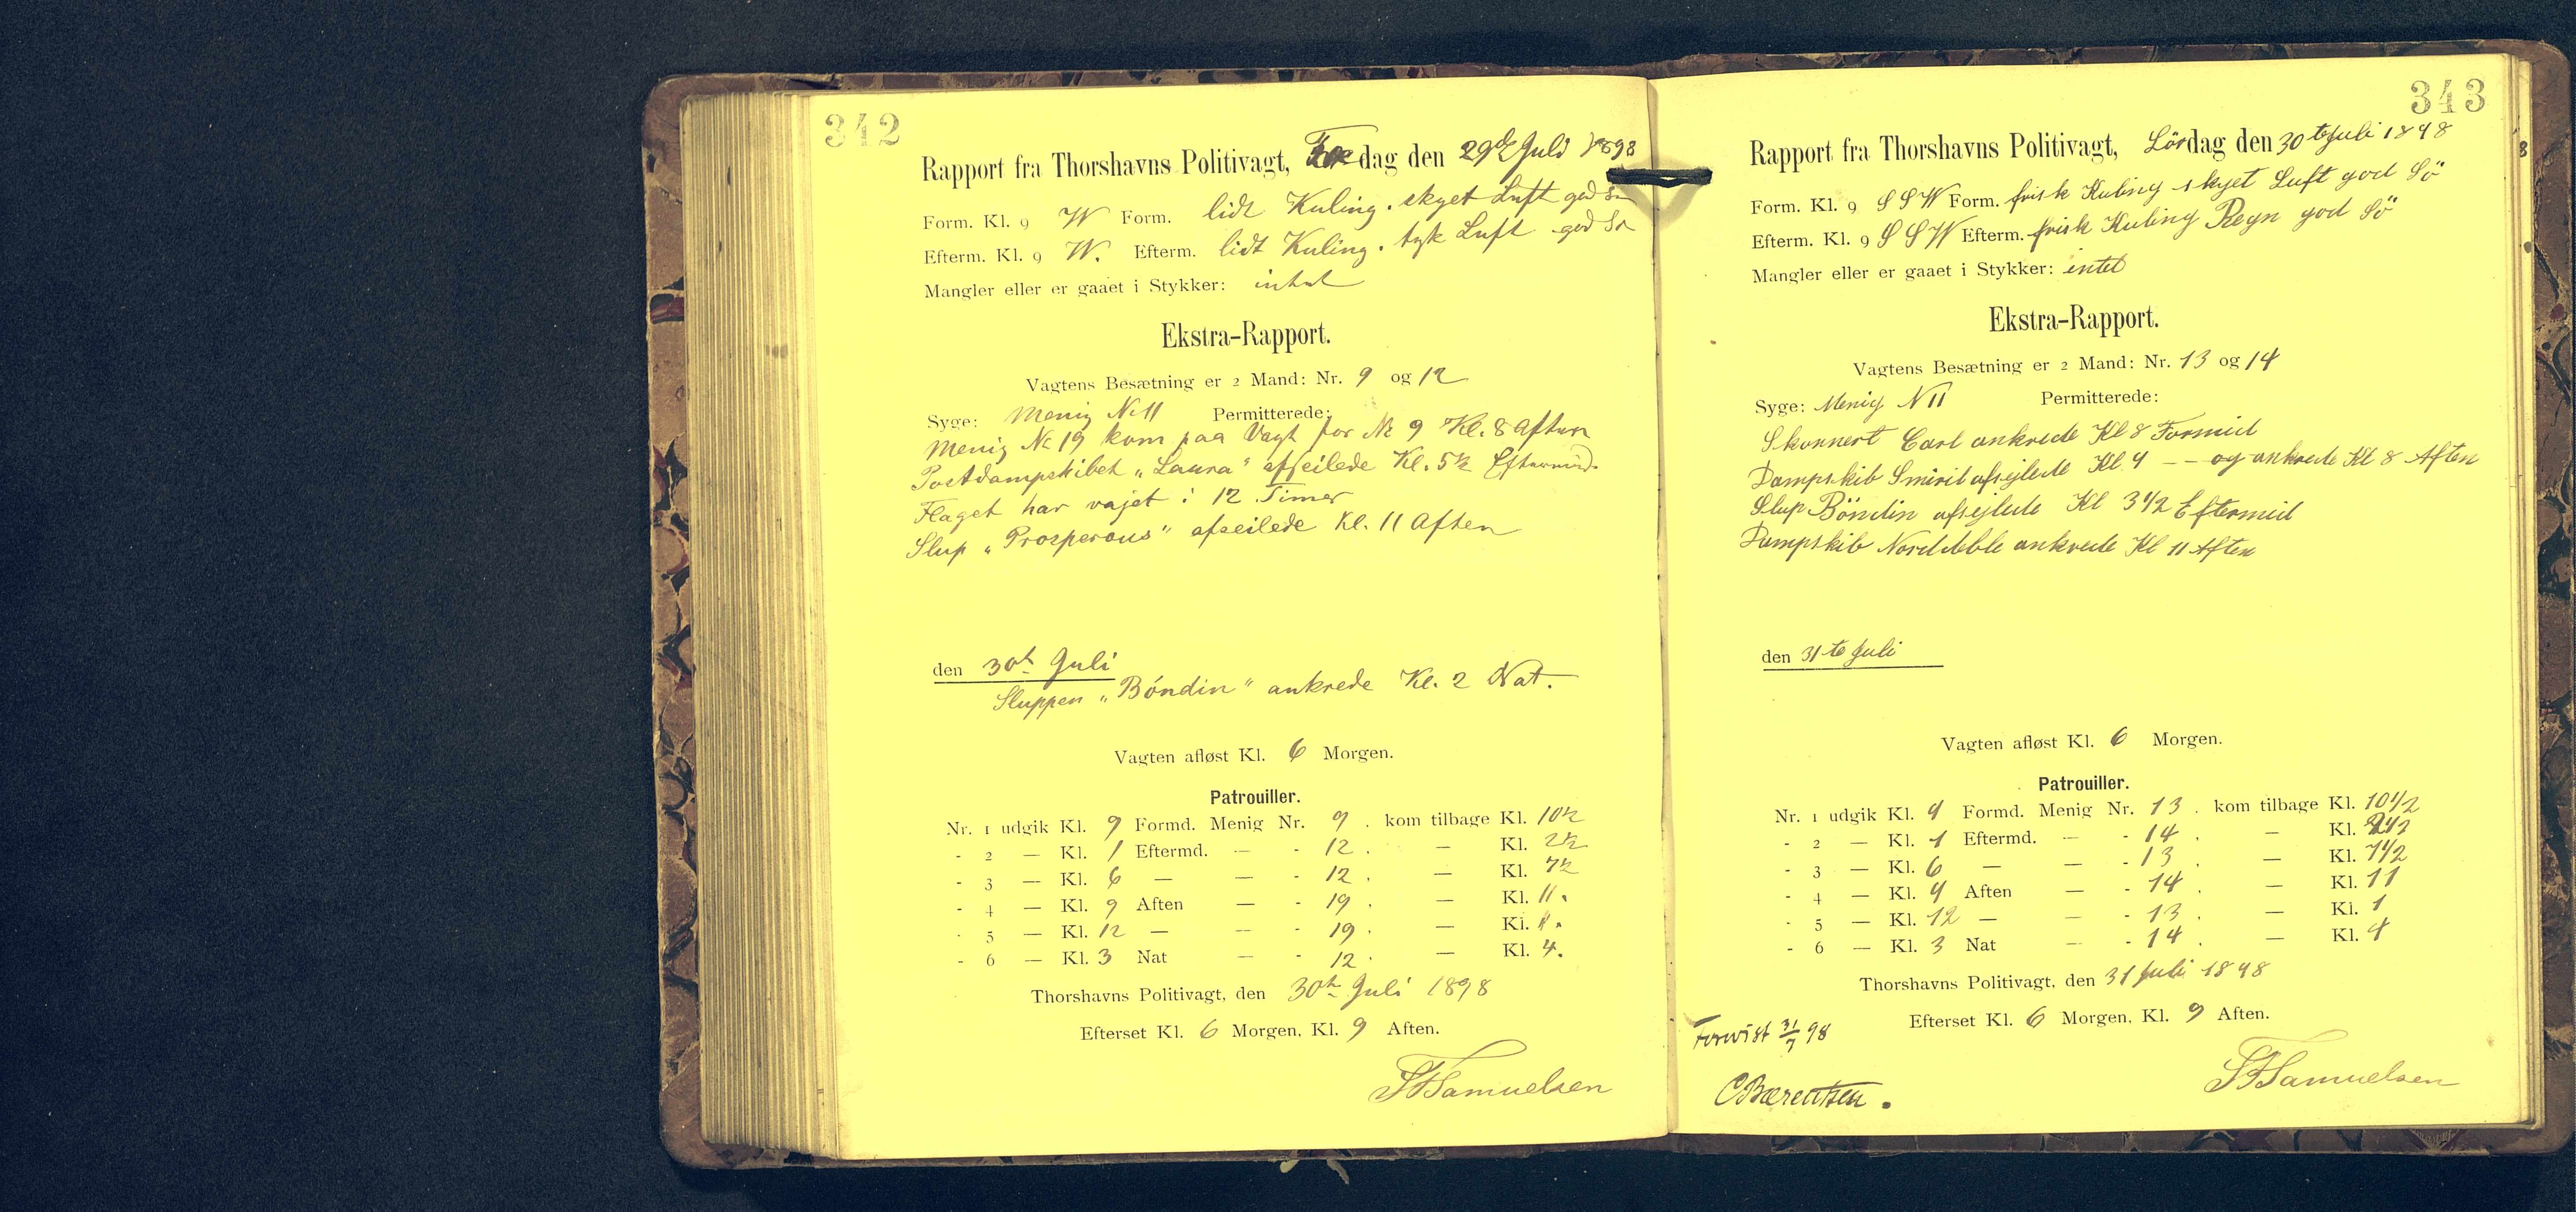 342
Rapport fra Thorshavns Politivagt, Fredag den 29de Juli 1898
Form. Kl. 9 W Form. lidt Kuling. skyet Luft god Sø
Efterm. Kl. 9 W. Efterm. lidt Kuling. tyk Luft god Sø
Mangler eller er gaaet i Stykker: intet
Ekstra-Rapport.
Vagtens Besætning er 2 Mand: Nr. 9 og 12
Syge: Menig N. 11 Permitterede:
Menig Nr 19 kom paa Vagt for Nr 9 Kl. 8 Aften
Postdampskibet „Laura" afseilede Kl. 5½ Eftermid.
Flaget har vajet i 12 Timer
Slup „Prosperous" afseilede Kl. 11 Aften
den 30te Juli
Sluppen „Bóndin" ankrede Kl. 2 Nat.
Vagten afløst Kl. 6 Morgen.
Patrouiller.
Nr. 1 udgik Kl. 9 Formd. Menig Nr. 9 . kom tilbage Kl. 10½
- 2 — Kl. 1 Eftermd. — - 12 . — Kl. 2½
- 3 — Kl. 6 — — - 12 . — Kl. 7½
- 4 — Kl. 9 Aften — - 19 . — Kl. 11.
- 5 — Kl. 12 — — - 19 . — Kl. 1.
- 6 — Kl. 3 Nat — - 12 . — Kl. 4.
Thorshavns Politivagt, den 30te Juli 1898
Efterset Kl. 6 Morgen, Kl. 9 Aften.
Samuelsen
343
Rapport fra Thorshavns Politivagt, Lördag den 30te Juli 1898
Form. Kl. 9 SSW Form. frisk Kuling skyet Luft god Sö
Efterm. Kl. 9 SSW Efterm. frisk Kuling Regn god Sö
Mangler eller er gaaet i Stykker: intet
Ekstra-Rapport.
Vagtens Besætning er 2 Mand: Nr. 13 og 14
Syge: Menig N 11 Permitterede:
Skonnert Carl ankrede Kl 8 Formid
Dampskib Smiril afsejlede Kl. 9 — — og ankrede Kl 8 Aften
Slup Böndin afsejlede Kl 3 1/2 Eftermid
Dampskib Norddeble ankrede Kl 11 Aften
den 31te Juli
Vagten afløst Kl. 6 Morgen.
Patrouiller.
Nr. 1 udgik Kl. 9 Formd. Menig Nr. 13 . kom tilbage Kl. 10 1/2
- 2 — Kl. 1 Eftermd. — - 14 . — Kl. 2 1/2
- 3 — Kl. 6 — — - 13 . — Kl. 7 1/2
- 4 — Kl. 9 Aften — - 14 . — Kl. 11
- 5 — Kl. 12 — — - 13 . — Kl. 1
- 6 — Kl. 3 Nat — - 14 . — Kl. 4
Thorshavns Politivagt, den 31 Juli 1898
Efterset Kl. 6 Morgen, Kl. 9 Aften.
Forevist 31/7 98
Samuelsen
C Bærentsen.